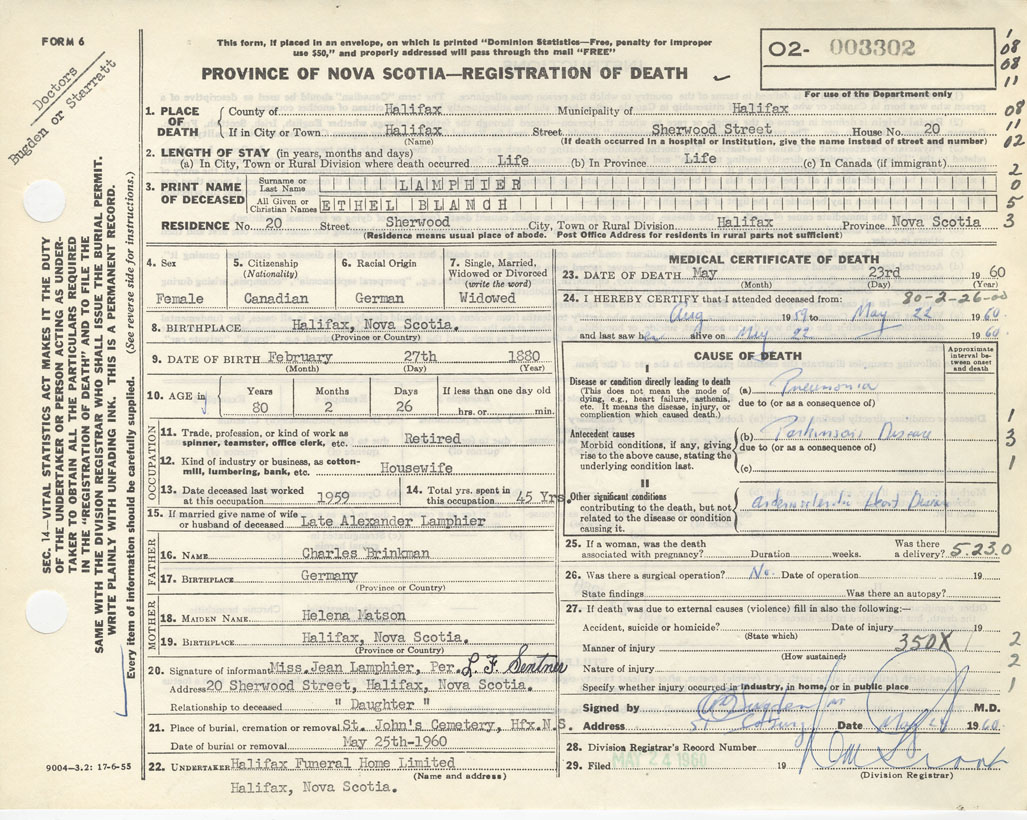 FORM 6
Doctors
Bugden or Starratt
This form, if placed in an envelope, on which is printed "Dominion Statistics—Free, penalty for improper
use $50," and properly addressed will pass through the mail "FREE"
PROVINCE OF NOVA SCOTIA—REGISTRATION OF DEATH
O2- 003302
For use of the Department only
1
08
08
11
08
11
02
2
0
5
3
1. PLACE OF DEATH County of Halifax Municipality of Halifax
If in City or Town Halifax Street Sherwood Street House No. 20
(Name) (If death occurred in a hospital or institution, give the name instead of street and number)
2. LENGTH OF STAY (in years, months and days)
(a) In City, Town or Rural Division where death occurred Life (b) In Province Life (c) In Canada (if immigrant)
3. PRINT NAME OF DECEASED Surname or Last Name LAMPHIER
All Given or Christian Names ETHEL BLANCH
RESIDENCE No. 20 Street Sherwood City, Town or Rural Division Halifax Province Nova Scotia
(Residence means usual place of abode. Post Office Address for residents in rural parts not sufficient)
SEC. 14—VITAL STATISTICS ACT MAKES IT THE DUTY
OF THE UNDERTAKER OR PERSON ACTING AS UNDER-
TAKER TO OBTAIN ALL THE PARTICULARS REQUIRED
IN THE "REGISTRATION OF DEATH" AND TO FILE THE
SAME WITH THE DIVISION REGISTRAR WHO SHALL ISSUE THE BURIAL PERMIT.
WRITE PLAINLY WITH UNFADING INK. THIS IS A PERMANENT RECORD.
Every item of information should be carefully supplied. (See reverse side for instructions.)
4. Sex
Female
5. Citizenship
(Nationality)
Canadian
6. Racial Origin
German
7. Single, Married,
Widowed or Divorced
(write the word)
Widowed
8. BIRTHPLACE Halifax, Nova Scotia.
(Province or Country)
9. DATE OF BIRTH February 27th 1880
(Month) (Day) (Year)
10. AGE in Years Months Days If less than one day old
80 2 26 hrs. or min.
OCCUPATION
11. Trade, profession, or kind of work as
spinner, teamster, office clerk, etc. Retired
12. Kind of industry or business, as cotton-
mill, lumbering, bank, etc. Housewife
13. Date deceased last worked
at this occupation 1959
14. Total yrs. spent in
this occupation 45 Yrs.
15. If married give name of wife
or husband of deceased Late Alexander Lamphier
FATHER
16. NAME Charles Brinkman
17. BIRTHPLACE Germany
(Province or Country)
MOTHER
18. MAIDEN NAME Helena Matson
19. BIRTHPLACE Halifax, Nova Scotia.
(Province or Country)
20. Signature of informant Miss. Jean Lamphier, Per. L. F. Sentner
Address 20 Sherwood Street, Halifax, Nova Scotia.
Relationship to deceased " Daughter "
21. Place of burial, cremation or removal St. John's Cemetery, Hfx.N.S.
Date of burial or removal May 25th-1960
22. UNDERTAKER Halifax Funeral Home Limited
(Name and address)
Halifax, Nova Scotia.
9004-3.2: 17-6-55
MEDICAL CERTIFICATE OF DEATH
23. DATE OF DEATH May 23rd 1960
(Month) (Day) (Year)
80-2-26-00
24. I HEREBY CERTIFY that I attended deceased from:
Aug 1959 to May 22 1960
and last saw her alive on May 22 1960
CAUSE OF DEATH
Approximate interval between onset and death
I
Disease or condition directly leading to death
(This does not mean the mode of
dying, e.g., heart failure, asthenia,
etc. It means the disease, injury, or
complication which caused death.)
(a) Pneumonia
due to (or as a consequence of)
Antecedent causes
Morbid conditions, if any, giving
rise to the above cause, stating the
underlying condition last.
(b) Parkinson's Disease
due to (or as a consequence of)
(c)
II
Other significant conditions
contributing to the death, but not
related to the disease or condition
causing it.
Heart Disease
1
3
1
25. If a woman, was the death
associated with pregnancy? Duration weeks. Was there
a delivery? 5.23.0
26. Was there a surgical operation? No. Date of operation 19
State findings Was there an autopsy?
27. If death was due to external causes (violence) fill in also the following:—
Accident, suicide or homicide? Date of injury 19
(State which)
Manner of injury 350X
(How sustained)
Nature of injury
Specify whether injury occurred in industry, in home, or in public place
2
2
1
Signed by M.D.
Address 51 Coburg Date May 24 1960
28. Division Registrar's Record Number
29. Filed MAY 24 1960 19
(Division Registrar)